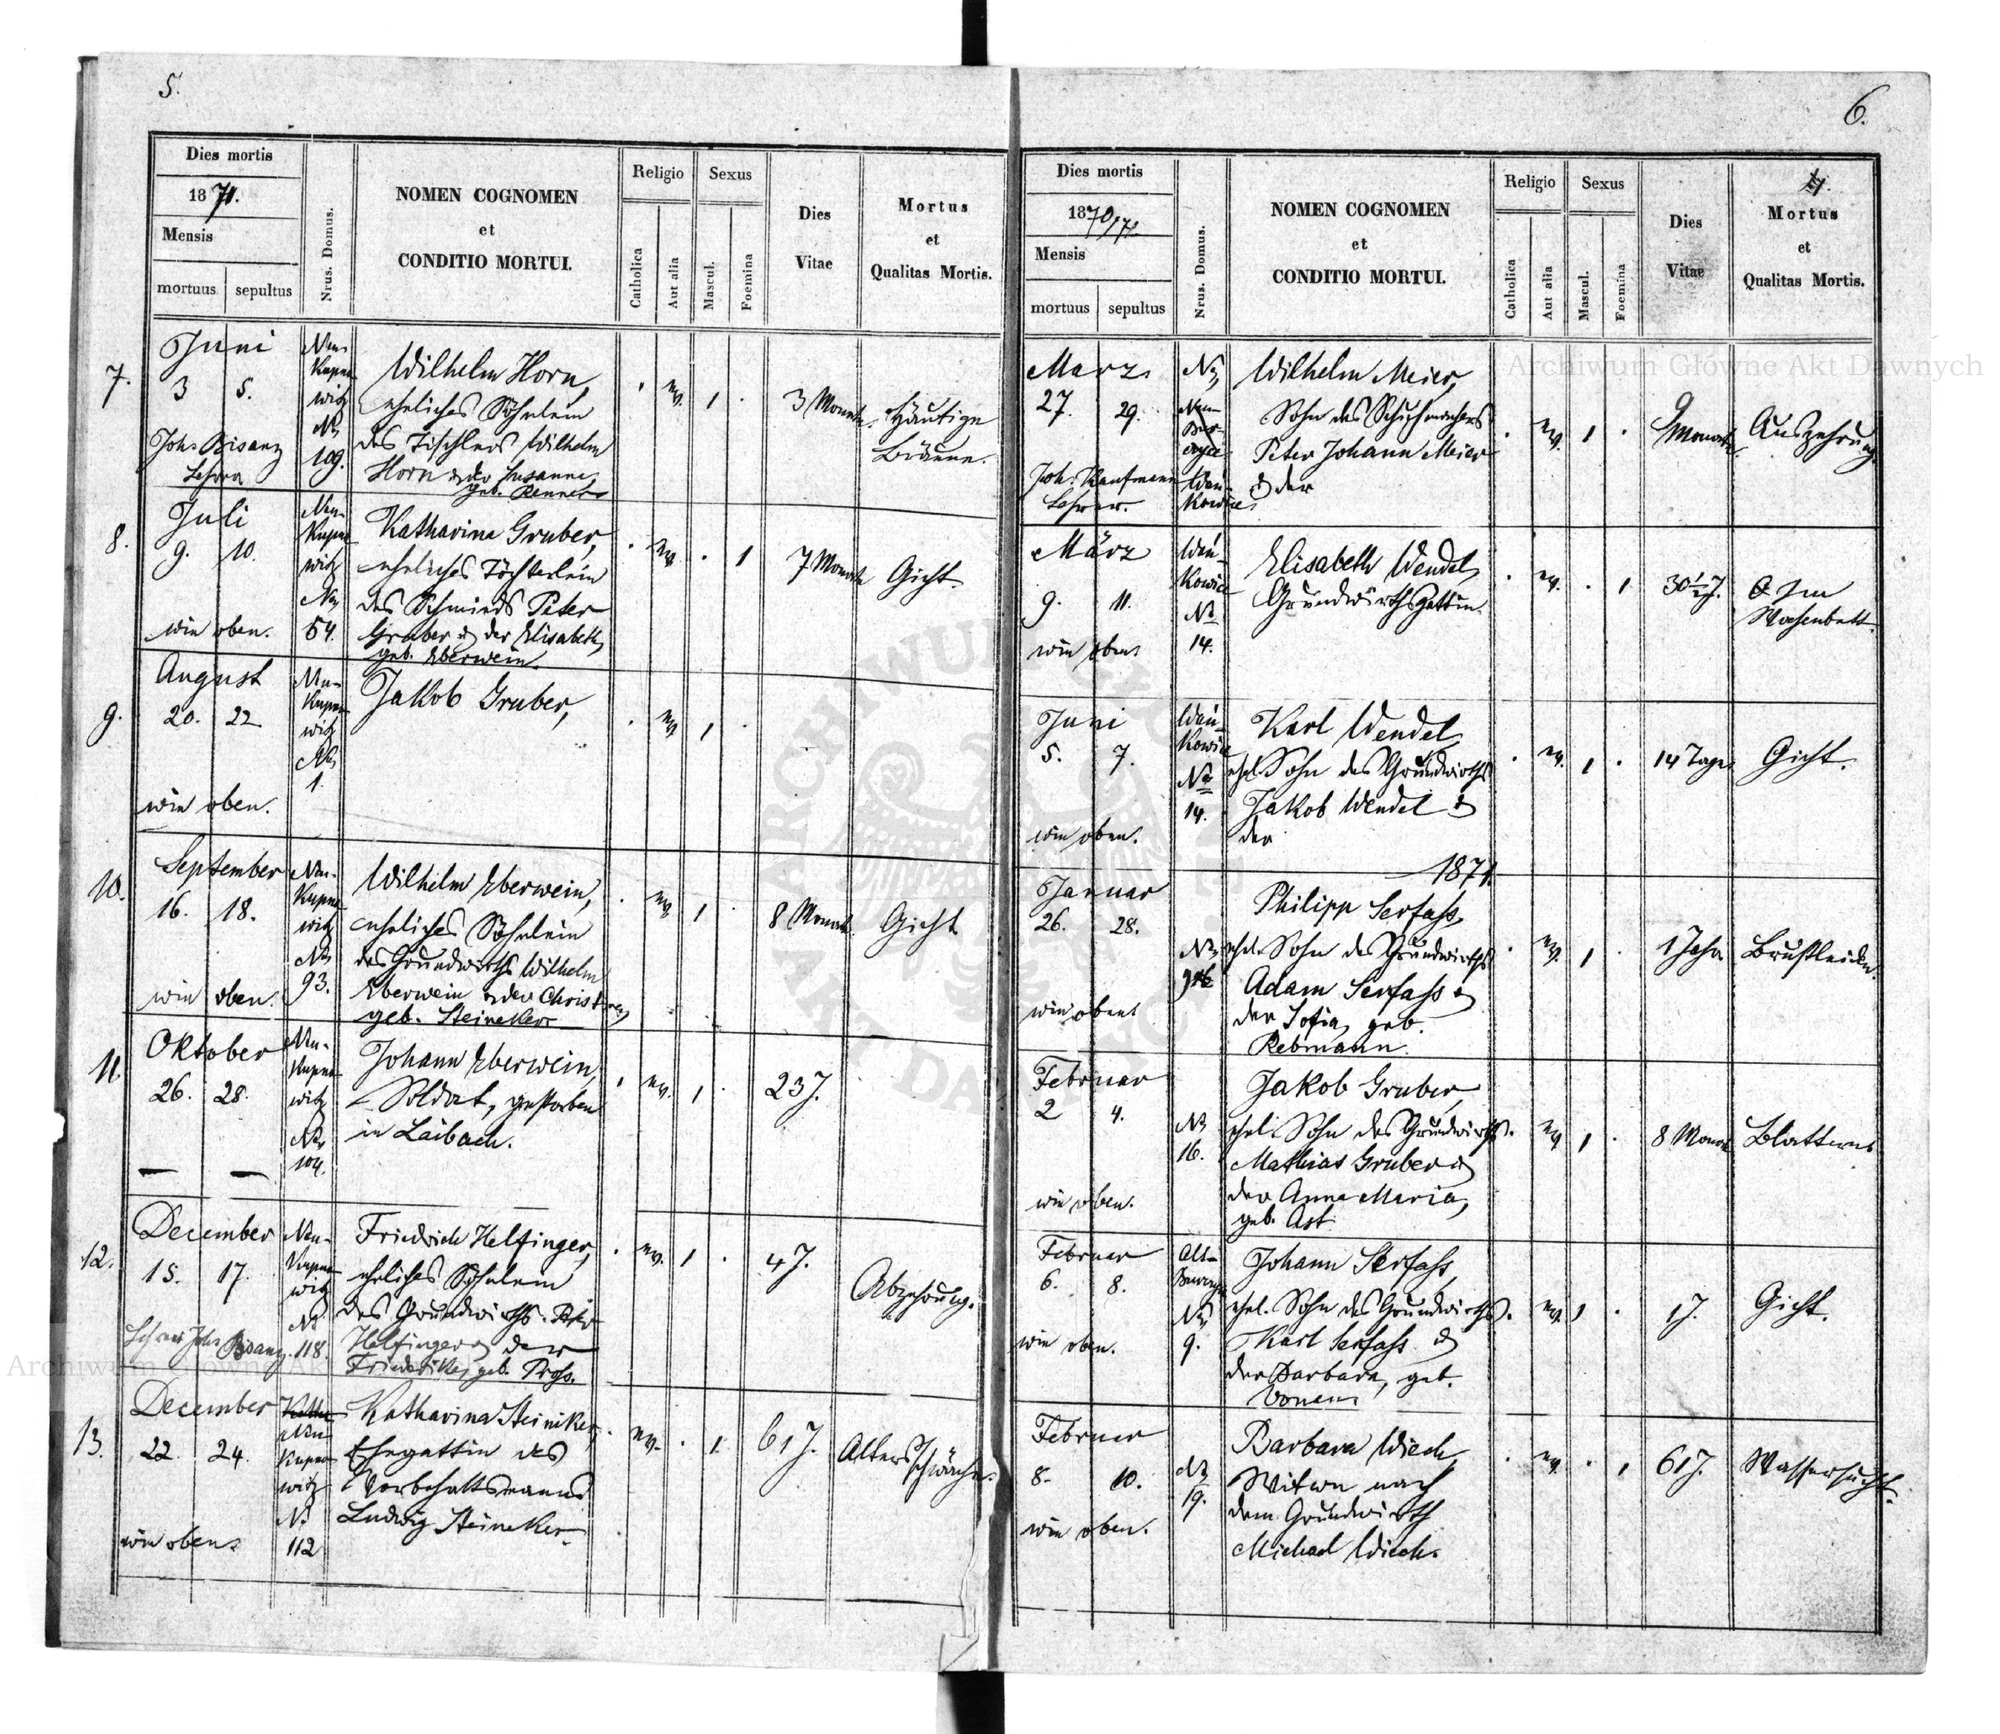 5.
Dies mortis
1871.
Mensis
mortuus sepultus
Nrus. Domus.
NOMEN COGNOMEN
et
CONDITIO MORTUI.
Religio
Catholica
Aut alia
Sexus
Mascul.
Foemina
Dies
Vitae
Mortus
et
Qualitas Mortis.
7.
Juni
3 5.
Joh. Bisanz
Lehrer
Neu-
Kupno-
witz
No
109.
Wilhelm Horn,
eheliches Söhnlein
des Tischlers Wilhelm
Horn u. der Susanna,
geb. Renner
ev.
1
3 Monate
Häutige
Bräune.
8.
Juli
9. 10.
wie oben.
Neu-
Kupno-
witz
No
54.
Katharina Gruber,
eheliches Töchterlein
des Schmieds Peter
Gruber u. der Elisabeth,
geb. Eberwein
ev.
1
7 Monate
Gicht.
9.
August
20. 22
wie oben.
Neu-
Kupno-
witz
No
1.
Jakob Gruber,
ev.
1
10.
September
16. 18.
wie oben.
Neu-
Kupno-
witz
No
93.
Wilhelm Eberwein,
eheliches Söhnlein
des Grundwirths Wilhelm
Eberwein u. der
geb. Steineker
ev.
1
8 Monate.
Gicht
11.
Oktober
26. 28.
— —
Neu-
Kupno-
witz
No
104.
Johann Eberwein,
Soldat, gestorben
in Laibach.
ev.
1
23 J.
12.
December
15. 17.
Lehrer Joh. Bisanz.
Neu-
Kupno-
witz
No
118.
Friedrich Helfinger,
eheliches Söhnlein
des Grundwirths
Helfinger u. der
Friederike, geb.
ev.
1
4 J.
Abzehrung.
13.
December
22. 24.
wie oben.
Neu-
Kupno-
witz
No
112
Katharina Steiniker,
Ehegattin des
Vorbehaltsmanns
Ludwig Steineker
ev.
1.
61 J.
Altersschwäche.
6.
Dies mortis
1870/71.
Mensis
mortuus sepultus
Nrus. Domus.
NOMEN COGNOMEN
et
CONDITIO MORTUI.
Religio
Catholica
Aut alia
Sexus
Mascul.
Foemina
Dies
Vitae
Mortus
et
Qualitas Mortis.
Marz
27. 29.
Joh. Kaufmann
Lehrer.
No
Wań-
kowice
Wilhelm Meier,
Sohn des Schuhmachers
Peter Johann Meier
u. der
ev.
1
9
Monate.
Auszehrung.
März
9. 11.
wie oben
Wań-
kowice
No
14.
Elisabeth Wendel,
Grundwirthsgattin.
ev.
1
30½ J.
Im
Wochenbett.
Juni
5. 7.
wie oben.
Wań-
kowice
No
14.
Karl Wendel,
ehel. Sohn des Grundwirths
Jakob Wendel u.
der
ev.
1
14 Tage
Gicht.
1871.
Januar
26. 28.
wie oben
No
Philipp Serfass,
ehel. Sohn des Grundwirths
Adam Serfass u.
der Sofia, geb.
Rebmann.
ev.
1
1 Jahr
Brustleiden.
Februar
2 4.
wie oben.
No
16.
Jakob Gruber,
ehel. Sohn des Grundwirths
Mathias Gruber u.
der Anna Maria,
geb. Ast
ev.
1
8 Monate
Blattern
Februar
6. 8.
wie oben.
Alt-
No
9.
Johann Serfass,
ehel. Sohn des Grundwirths
Karl Serfass u.
der Barbara, geb.
ev.
1
1 J.
Gicht.
Februar
8. 10.
wie oben.
No
19.
Barbara Wiech,
Witwe nach
dem Grundwirth
Michael Wiech.
ev.
1
61 J.
Wassersucht.
Archiwum Główne Akt Dawnych
Archiwum Główne Akt
ARCHIWUM GŁÓWNE
AKT DAWNYCH